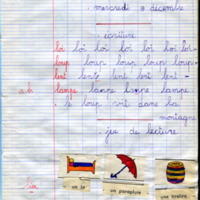 . mercredi 9 décembre
. écriture.
loi loi loi loi loi loi loi-
loup loup loup loup loup.
lent lent lent lent lent -
a.b lampe lampe lampe lampe
. le loup vit dans la
montagne
. jeu de lecture.
un lit un parapluie